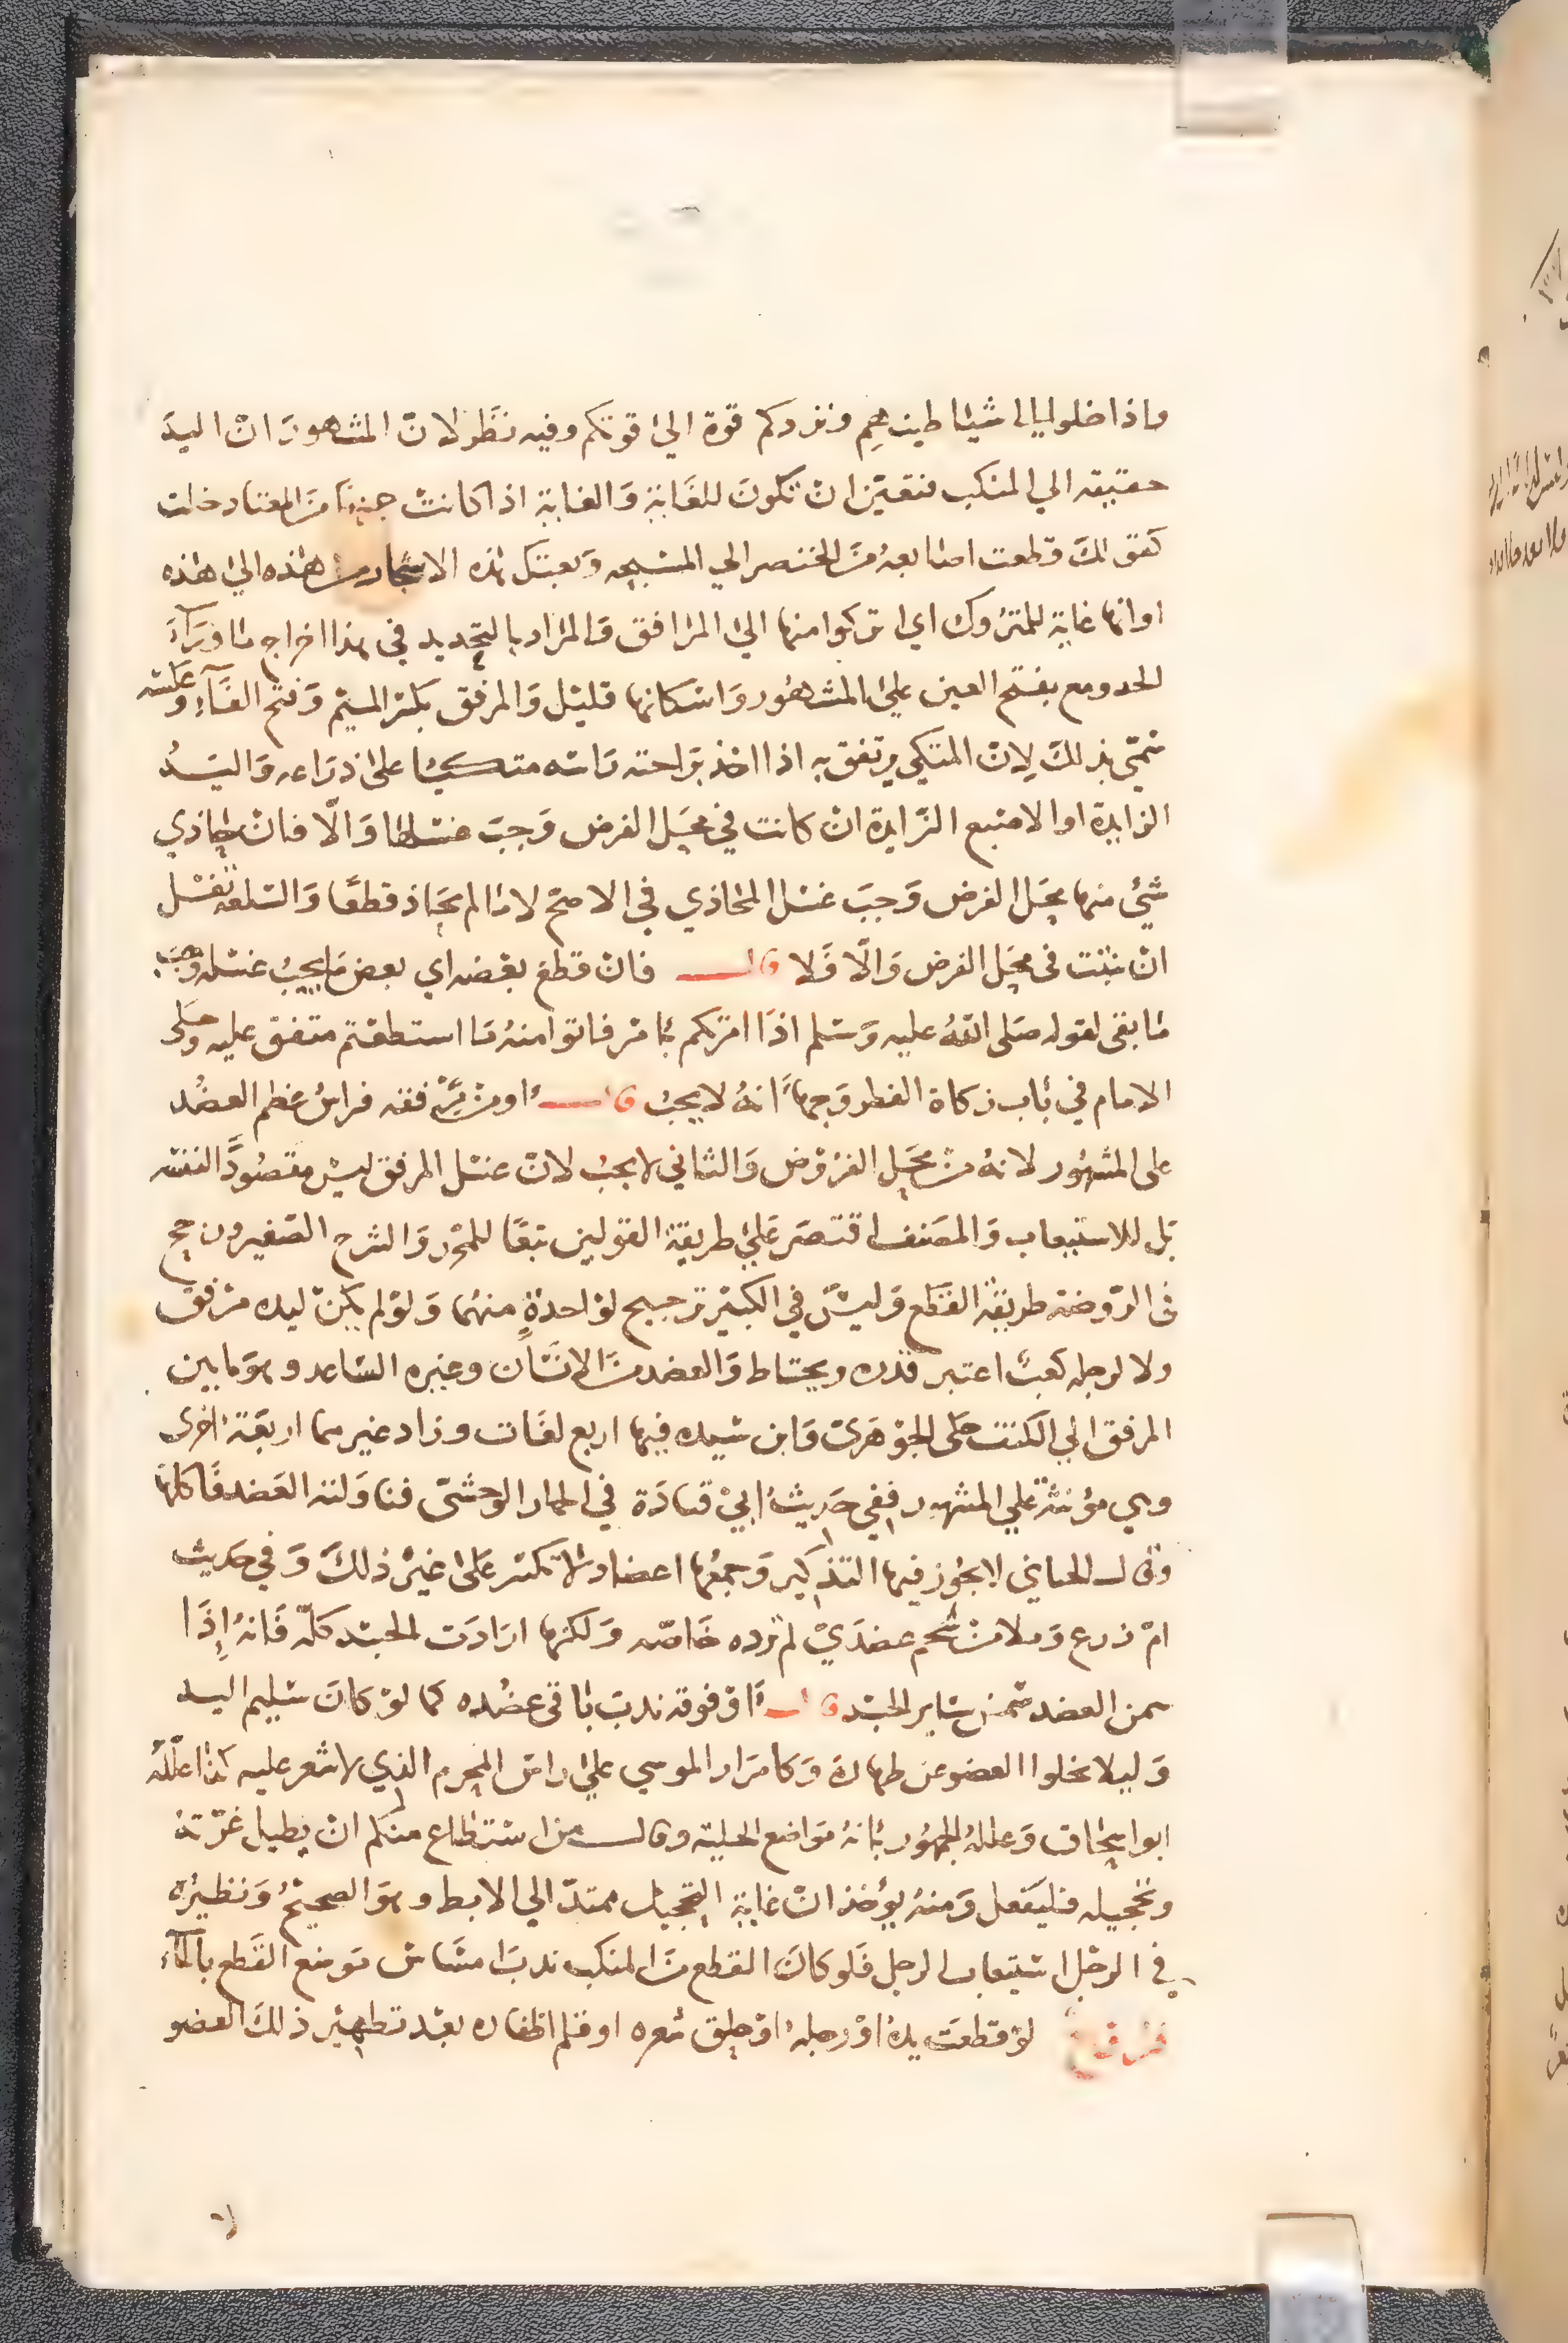 واذا خلوا الى شياطينهم ونزدكم قوة الى قوتكم وفيه نظر لان المشهور ان اليد
حقيقة الي المنكب فتعين ان تكون للغاية والغاية اذا كانت جزءًا من المعتاد دخلت
كقولك قطعت اصابعه من الخنصر الي المسبحه وبعتك هذه الاشجار من هذه الى هذه
او انها غاية للمتروك اي اتركوا منها الي المرافق والمراد بالتحديد في هذا اخراج ما وراء
الحد ومع بفتح العين علي المشهور واسكانها قليل والمرفق بكسر الميم وفتح الفآء وعكسه
سمي بذلك لان المتكي يرتفق به اذا اخذ براحته راسه متكئا على ذراعه واليد
الزايدة او الاصبع الزايدة ان كانت في محل الفرض وجب غسلها والّا فان حاذي
شيء منها محل الفرض وجب غسل المحاذي في الاصح لا ما لم يحاذ قطعا والسلعة تغسل
ان نبتت في محل الفرض والّا فلا قال فان قطع بعضه اي بعض ما يجب غسله وجب
ما بقى لقوله صلى الله عليه وسلم اذا امرتكم بامر فاتوا منه ما استطعتم متفق عليه وحكى
الامام في باب زكاة الفطر وجها انه لا يجب قال او من مرفقه فراس عظم العضد
على المشهور لانه من محل الفروض والثاني لا يجب لان غسل المرفق ليس مقصودا لنفسه
بل للاستيعاب والمصنف اقتصر علي طريقة القولين تبعا للمحرر والشرح الصغير ورجح
في الروضة طريقة القطع وليس في الكبير ترجيح لواحدة منهما ولو لم يكن ليده مرفق
ولا لرجله كعب اعتبر قدره ويحتاط والعضد من الانسان وغيره الساعد وهو ما بين
المرفق الي الكتف حكى الجوهرى وابن سيده فيها اربع لغات وزاد غيرهما اربعة اخرى
وهي مؤنثة علي المشهور ففي حديث ابي قتادة في الحمار الوحشى فناولته العضد فاكلها
وقال اللحياني لا يجوز فيها التذكير وجمعها اعضاد لا تكسر على غير ذلك وفي حديث
ام زرع وملا من شحم عضدي لم ترده خاصة ولكنها ارادت الجسد كله فانه إذا
سمن العضد سمن ساير الجسد قال او فوقه ندب باقى عضده كما لو كان سليم اليد
وليلا يخلوا العضو عن طهارة وكامرار الموسي علي راس المحرم الذي لا شعر عليه كذا علله
ابو اسحاق وعلله الجمهور بانه مواضع الحلية وقال من استطاع منكم ان يطيل غرته
وتحجيله فليفعل ومنه يؤخذ ان غاية التحجيل ممتدّ الي الابط وهو الصحيح ونظيره
في الرجل استيعاب الرجل فلو كان القطع من المنكب ندب امساس موضع القطع بالماء
فرع لو قطعت يده او رجله او حلق شعره او قلم اظفاره بعد تطهير ذلك العضو
لا